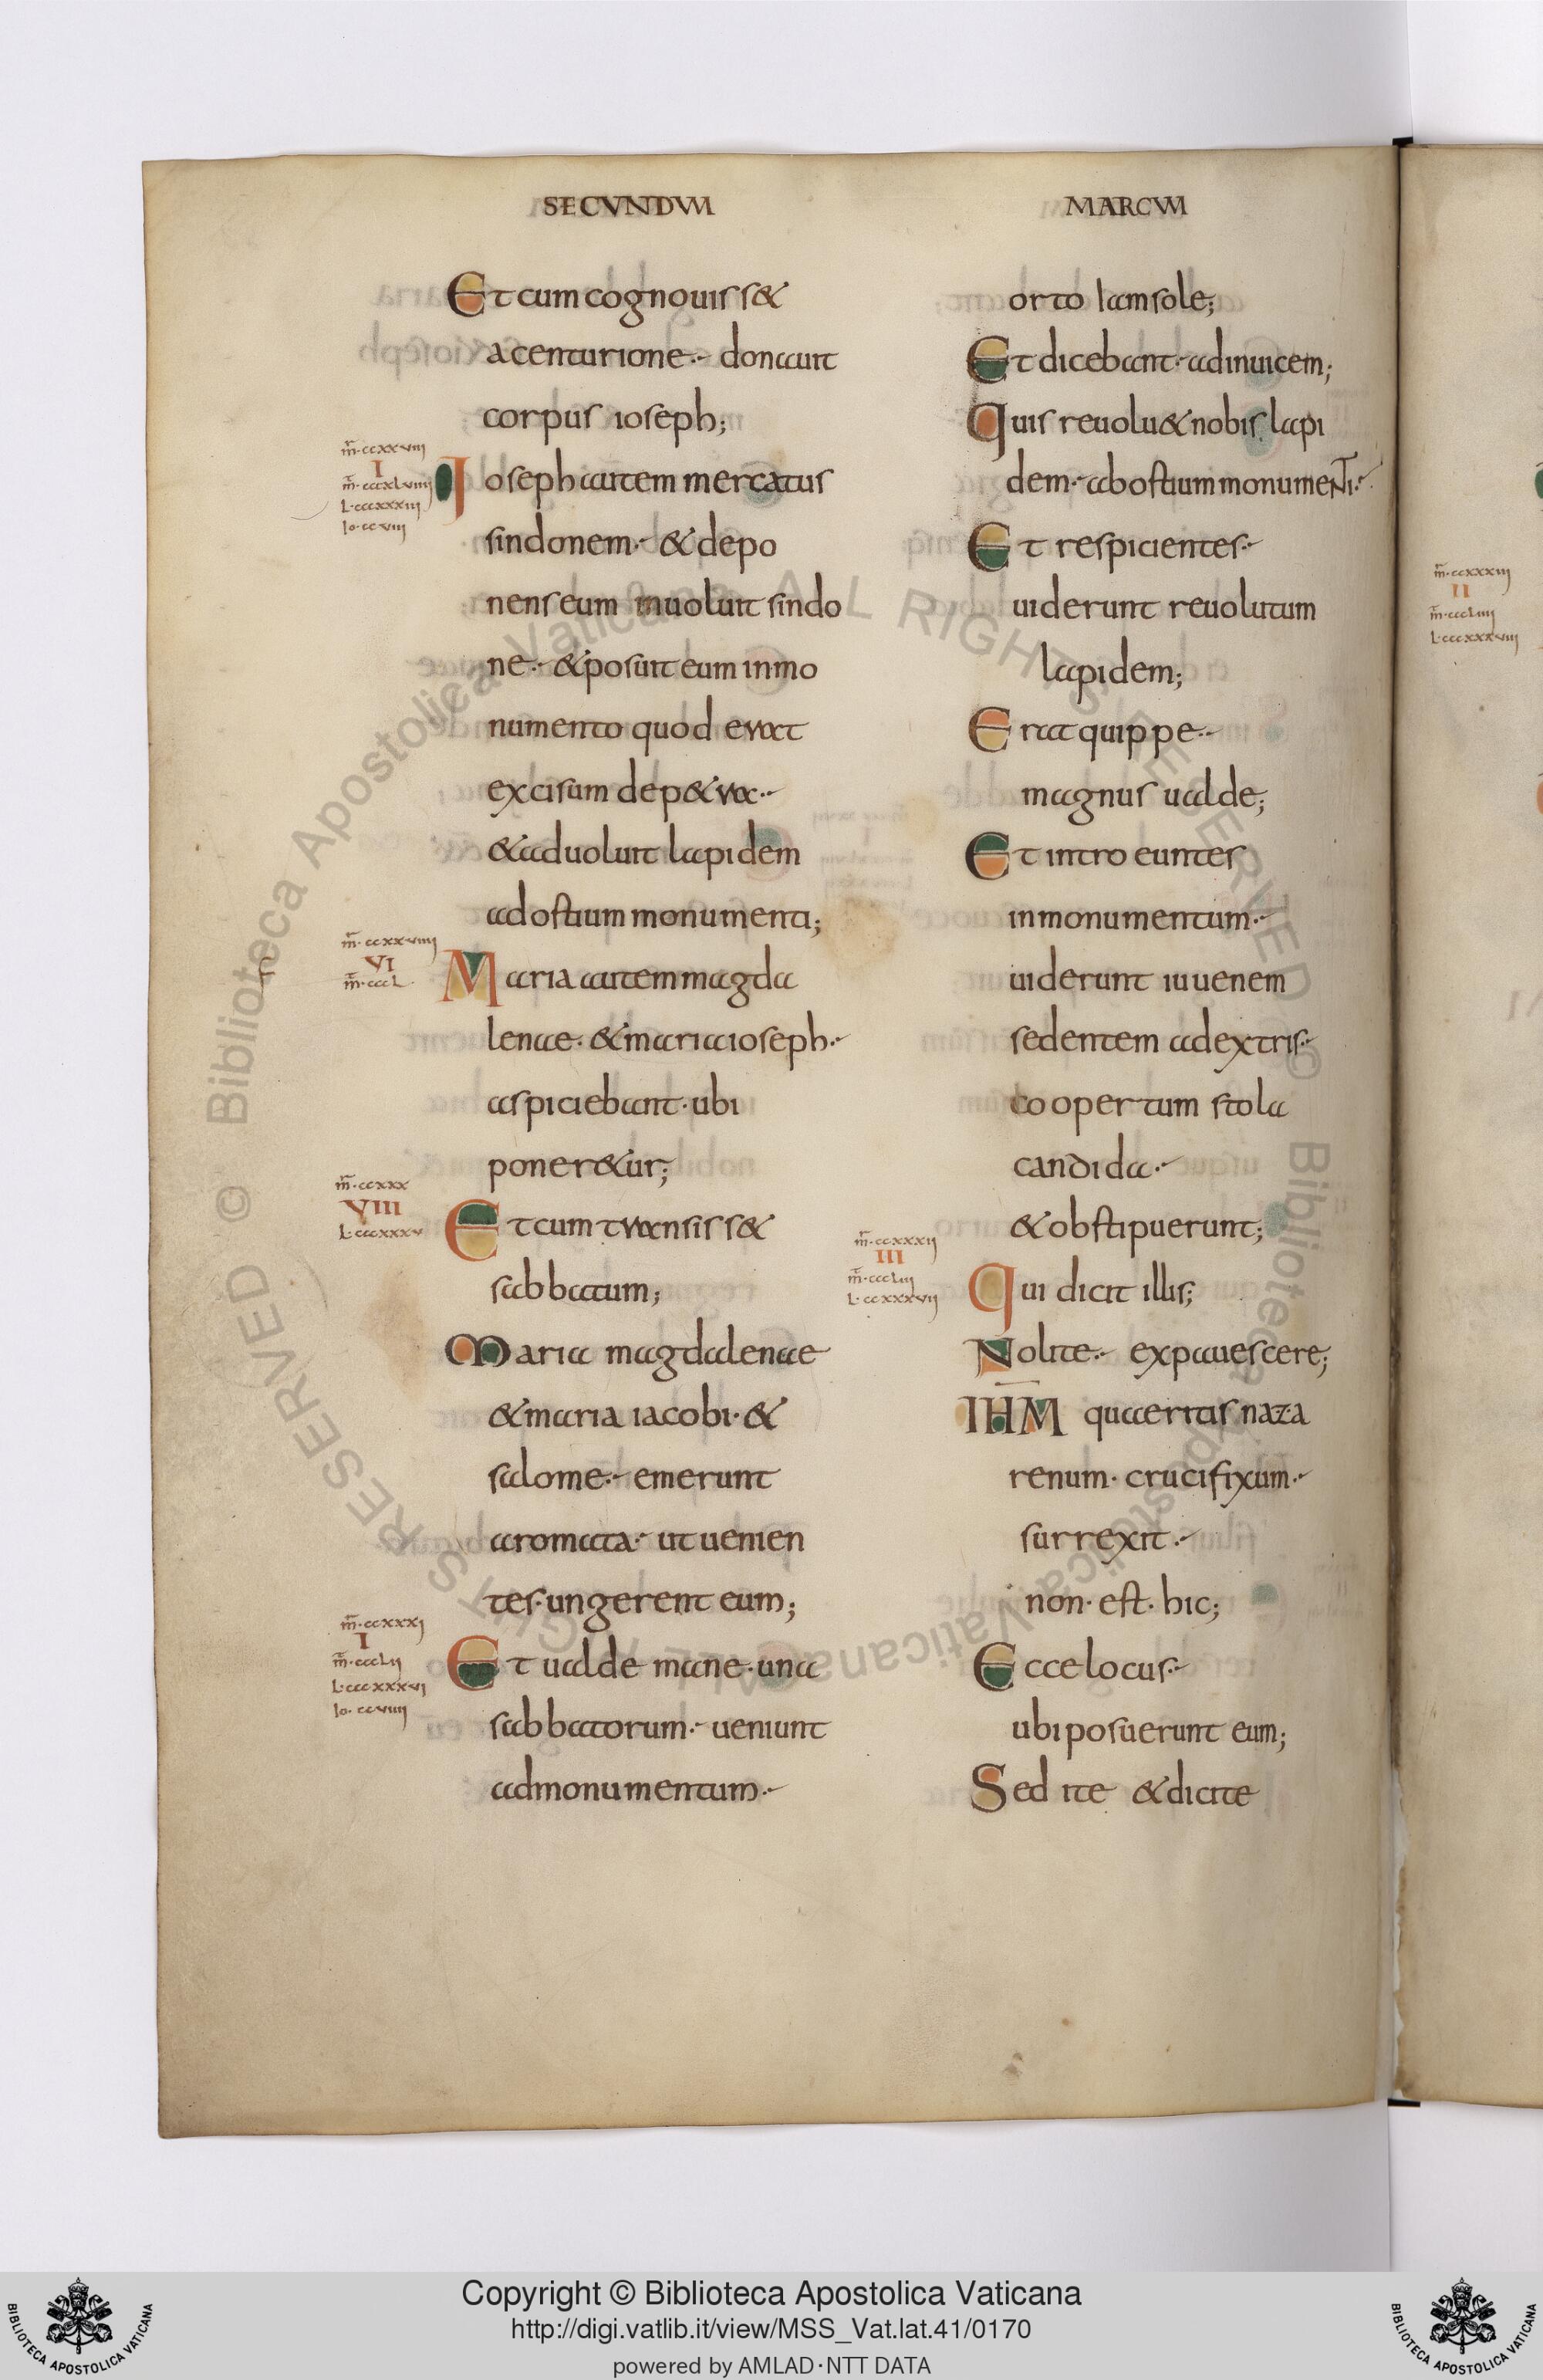 SECVNDVM
Et cum cognouisset
a centurione · donauit
corpus ioseph;
mr̄·ccxxviii
I
mt̄·cccxlviiii
L·cccxxxiii
Io·ccviii
Ioseph autem mercatus
sindonem · & depo
nens eum inuoluit sindo
ne · & posuit eum in mo
numento quod erat
excisum de p&ra ·
& aduoluit lapidem
ad ostium monumenti;
mr̄·ccxxviiii
VI
mt̄·cccL
Maria autem magda
lenae · & maria ioseph ·
aspiciebant · ubi
poner&ur;
mr̄·ccxxx
VIII
L·cccxxxv
Et cum transiss&
sabbatum;
Maria magdalenae
& maria iacobi · &
salome · emerunt
aromata · ut uenien
tes · ungerent eum;
mr̄·ccxxxi
I
mt̄·cccLii
L·cccxxxvi
Io·ccviiii
Et ualde mane · una
sabbatorum · ueniunt
ad monumentum ·
MARCVM
orto iam sole;
Et dicebant · adinuicem;
Quis reuolu& nobis lapi
dem · ab ostium monumenti ·
Et respicientes ·
uiderunt reuolutum
lapidem;
Erat quippe ·
magnus ualde;
Et intro euntes
in monumentum ·
uiderunt iuuenem
sedentem a dextris ·
coopertum stola
candida ·
& obstipuerunt;
mr̄·ccxxxii
III
mt̄·cccLiii
L·ccxxxvii
Qui dicit illis;
Nolite · expauescere;
IHM quaeritis naza
renum · crucifixum ·
surrexit ·
non · est · hic;
Ecce locus ·
ubi posuerunt eum;
Sed ite & dicite
mr̄·ccxxxiii
II
mt̄·cccLiiii
L·cccxxxviii
© Biblioteca Apostolica Vaticana ALL RIGHTS RESERVED
© Biblioteca Apostolica Vaticana ALL RIGHTS RESERVED
Copyright © Biblioteca Apostolica Vaticana
http://digi.vatlib.it/view/MSS_Vat.lat.41/0170
powered by AMLAD·NTT DATA
BIBLIOTECA APOSTOLICA VATICANA
BIBLIOTECA APOSTOLICA VATICANA